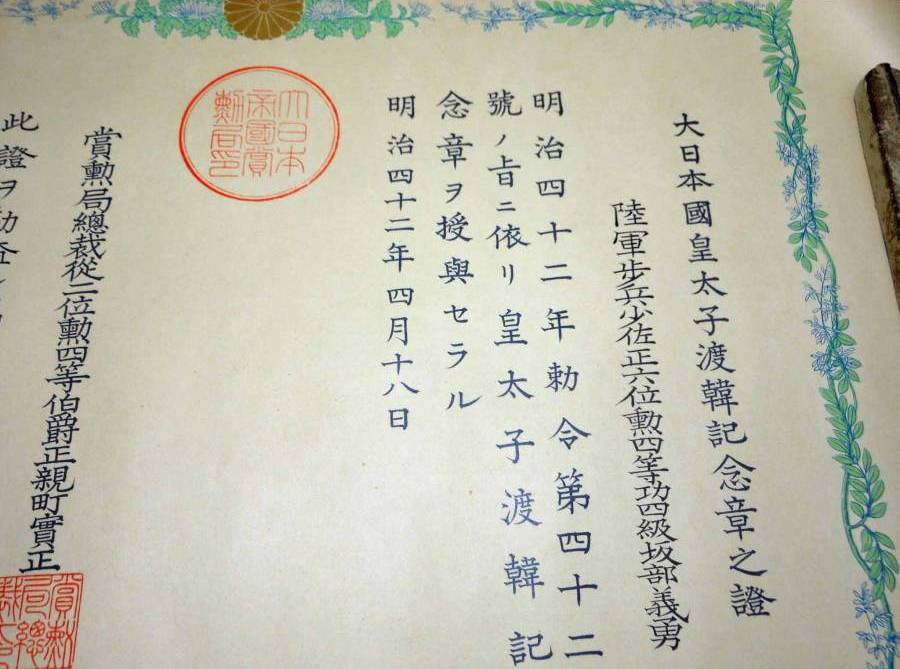 大日本國皇太子渡韓記念章之證
陸軍步兵少佐正六位勲四等功四級坂部義勇
明治四十二年勅令第四十二
號ノ旨ニ依リ皇太子渡韓記
念章ヲ授與セラル
明治四十二年四月十八日
大日本
帝國賞
勲局印
賞勲局總裁從二位勲四等伯爵正親町實正
此證ヲ勘査